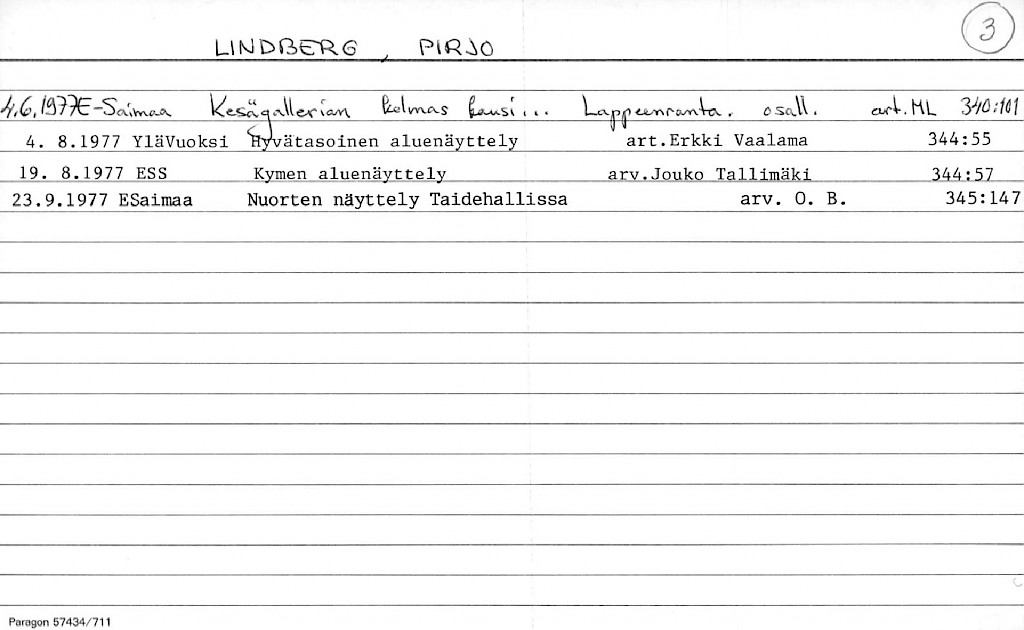 3
LINDBERG, PIRJO
4.6.1977 E-Saimaa Kesägallerian kolmas kausi... Lappeenranta. osall. art. ML 340:101
4. 8.1977 YläVuoksi Hyvätasoinen aluenäyttely art.Erkki Vaalama 344:55
19. 8.1977 ESS Kymen aluenäyttely arv.Jouko Tallimäki 344:57
23.9.1977 ESaimaa Nuorten näyttely Taidehallissa arv. O. B. 345:147
Paragon 57434/711